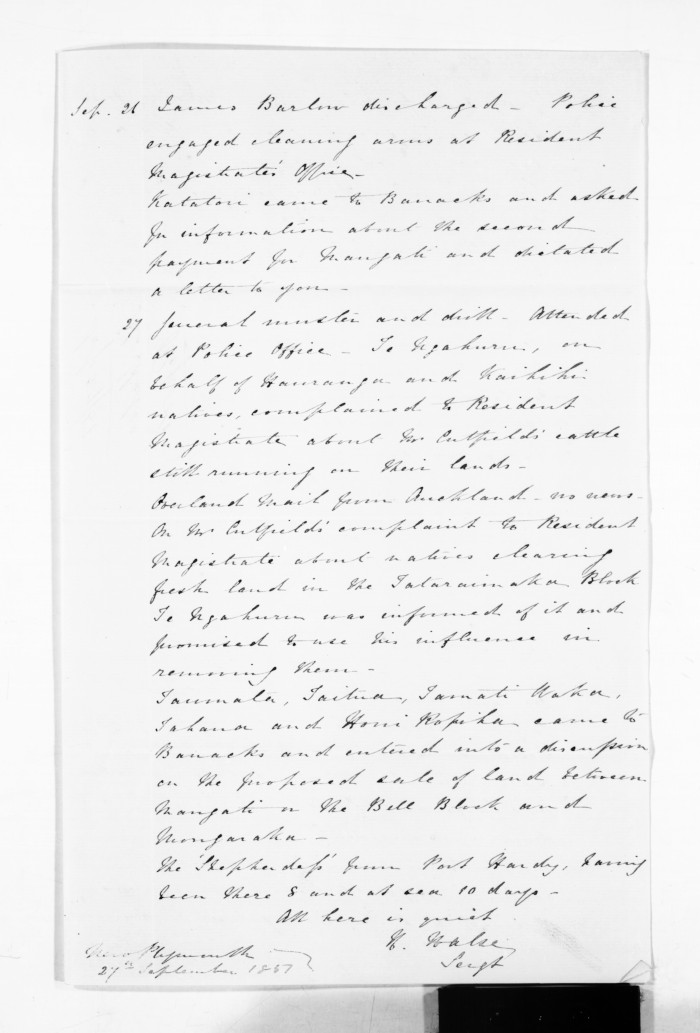 Sep. 26 James Barlow discharged - Police
engaged cleaning arms at Resident
Magistrate's Office -
Katatori came to Barracks and asked
for information about the second
payment for Mangati and dictated
a letter to you -
27 General muster and drill - Attended
at Police Office - Te Ngahuru, on
behalf of Hauranga and Kaihihi
natives, complained to Resident
Magistrate about Mr Cutfield's cattle
still running on their lands -
Overland Mail from Auckland - no news -
On Mr Cutfield's complaint to Resident
Magistrate about natives clearing
fresh land in the Tataraimaka Block
Te Ngahuru was informed of it and
promised to use his influence in
removing them -
Taumata, Taitua, Tamati Waka,
Tahana and Honi Ropiha came to
Barracks and entered into a discussion
on the proposed sale of land between
Mangati or the Bell Block and
Mongaraka -
The 'Shepherdess' from Port Hardy, having
been there 8 and at sea 10 days -
All here is quiet.
H. Halse
Sergt
New Plymouth
27th September 1851